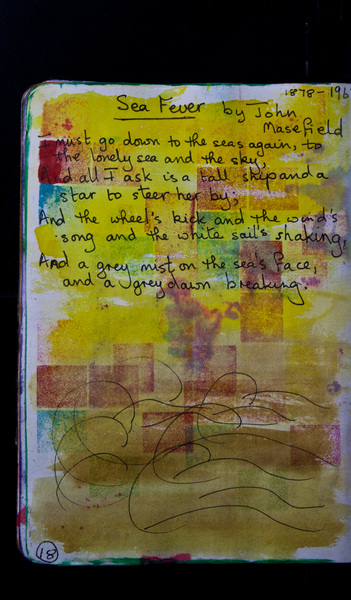 1878-196
Sea Fever by John
Masefield
I must go down to the seas again, to
the lonely sea and the sky,
And all I ask is a tall ship and a
star to steer her by;
And the wheel's kick and the wind's
song and the white sail's shaking,
And a grey mist on the sea's face,
and a grey dawn breaking.
18